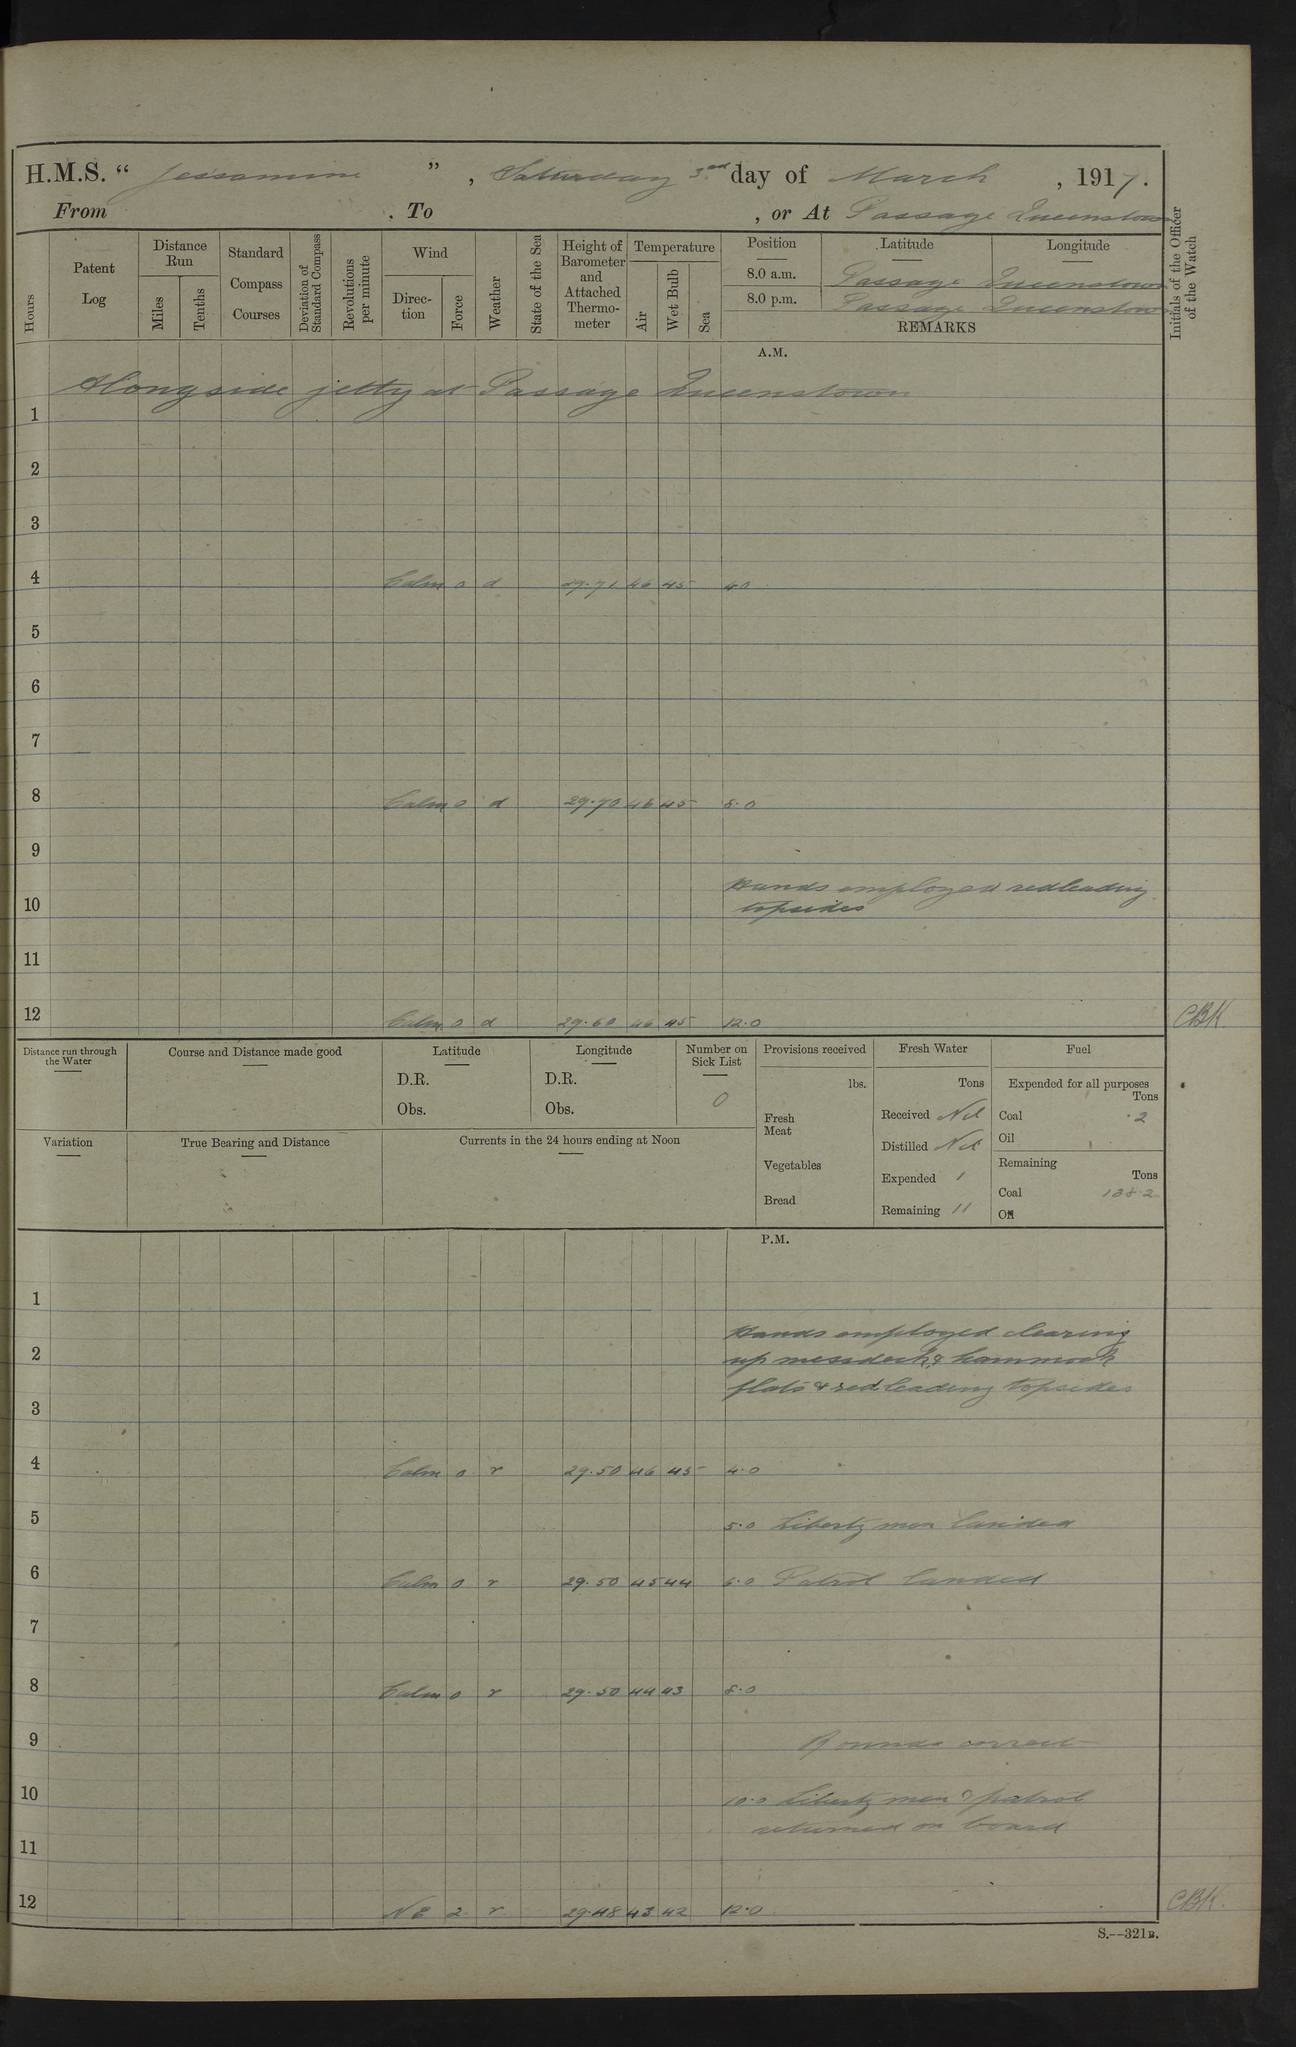 H.M.S. “ Jessamine ”, Saturday 3rd day of March, 1917.
From . To , or At Passage Queenstown
Hours
Patent Log
Distance Run
Miles
Tenths
Standard Compass Courses
Deviation of Standard Compass
Revolutions per minute
Wind
Direc-tion
Force
Weather
State of the Sea
Height of Barometer and Attached Thermo-meter
Temperature
Air
Wet Bulb
Sea
Position Latitude Longitude
8.0 a.m. Passage Queenstown
8.0 p.m. Passage Queenstown
REMARKS
Initials of the Officer of the Watch
A.M.
Alongside jetty at Passage Queenstown
1
2
3
4 Calm 0 d 29.71 46 45 4.0
5
6
7
8 Calm 0 d 29.70 46 45 8.0
9
Hands employed redleading
10 topsides
11
12 Calm 0 d 29.60 46 45 12.0 CBK
Distance run through the Water
Course and Distance made good
Latitude
D.R.
Obs.
Longitude
D.R.
Obs.
Number on Sick List
0
Provisions received
lbs.
Fresh Meat
Vegetables
Bread
Fresh Water
Tons
Received Nil
Distilled Nil
Expended 1
Remaining 11
Fuel
Expended for all purposes
Tons
Coal .2
Oil
Remaining
Tons
Coal 138.2
Oil
Variation
True Bearing and Distance
Currents in the 24 hours ending at Noon
P.M.
1
Hands employed clearing
2 up messdeck & hammock
flats & redleading topsides
3
4 Calm 0 r 29.50 46 45 4.0
5 5.0 Liberty men landed
6 Calm 0 r 29.50 45 44 6.0 Patrol landed
7
8 Calm 0 r 29.50 44 43 8.0
9 Rounds correct
10 10.0 Liberty men & patrol
returned on board
11
12 NE 2 r 29.48 43 42 12.0 CBK.
S.--321B.